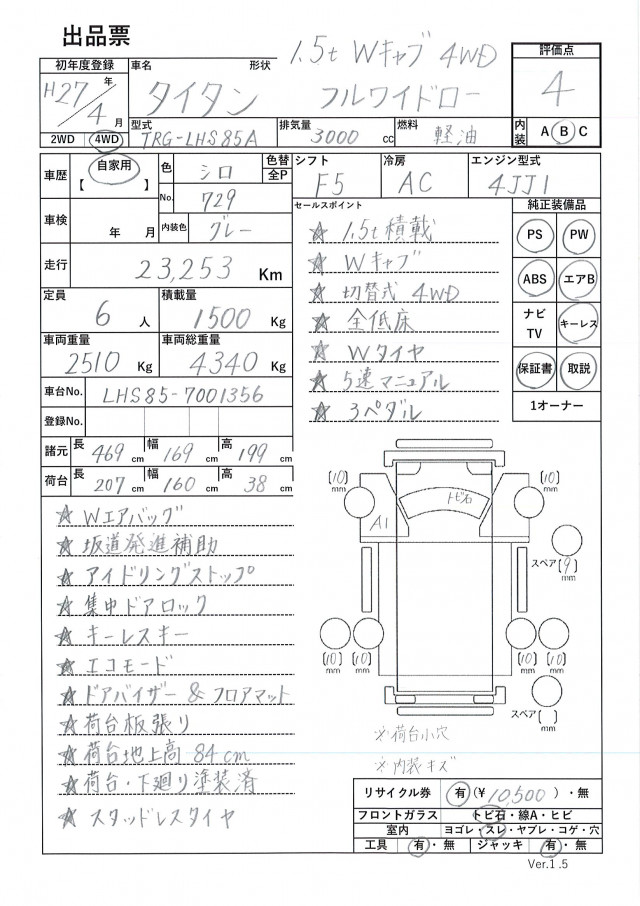 出品票
1.5t Wキャブ 4WD
初年度登録
車名
形状
評価点
H27年
4月
タイタン
フルワイドロー
4
2WD 4WD
型式
TRG-LHS85A
排気量
3000 cc
燃料
軽油
内装
A B C
車歴
自家用
【 】
色
シロ
色替
全P
No.
729
内装色
グレー
シフト
F5
冷房
AC
エンジン型式
4JJ1
車検
年 月
走行
23,253 Km
定員
6 人
積載量
1500 Kg
車両重量
2510 Kg
車両総重量
4340 Kg
車台No.
LHS85-7001356
登録No.
諸元
長 469 cm
幅 169 cm
高 199 cm
荷台
長 207 cm
幅 160 cm
高 38 cm
セールスポイント
☆ 1.5t積載
☆ Wキャブ
☆ 切替式 4WD
☆ 全低床
☆ Wタイヤ
☆ 5速マニュアル
☆ 3ペダル
純正装備品
PS PW
ABS エアB
ナビTV キーレス
保証書 取説
1オーナー
☆ Wエアバッグ
☆ 坂道発進補助
☆ アイドリングストップ
☆ 集中ドアロック
☆ キーレスキー
☆ エコモード
☆ ドアバイザー & フロアマット
☆ 荷台板張り
☆ 荷台地上高 84cm
☆ 荷台・下廻り塗装済
☆ スタッドレスタイヤ
[10] mm
[10] mm
トビ石
A1
スペア [9] mm
[10] mm
[10] mm
[10] mm
[10] mm
スペア [ ] mm
※荷台小穴
※内装キズ
リサイクル券 有 (¥ 10,500 )・無
フロントガラス トビ石・線A・ヒビ
室内 ヨゴレ・スレ・ヤブレ・コゲ・穴
工具 有・無 ジャッキ 有・無
Ver.1.5